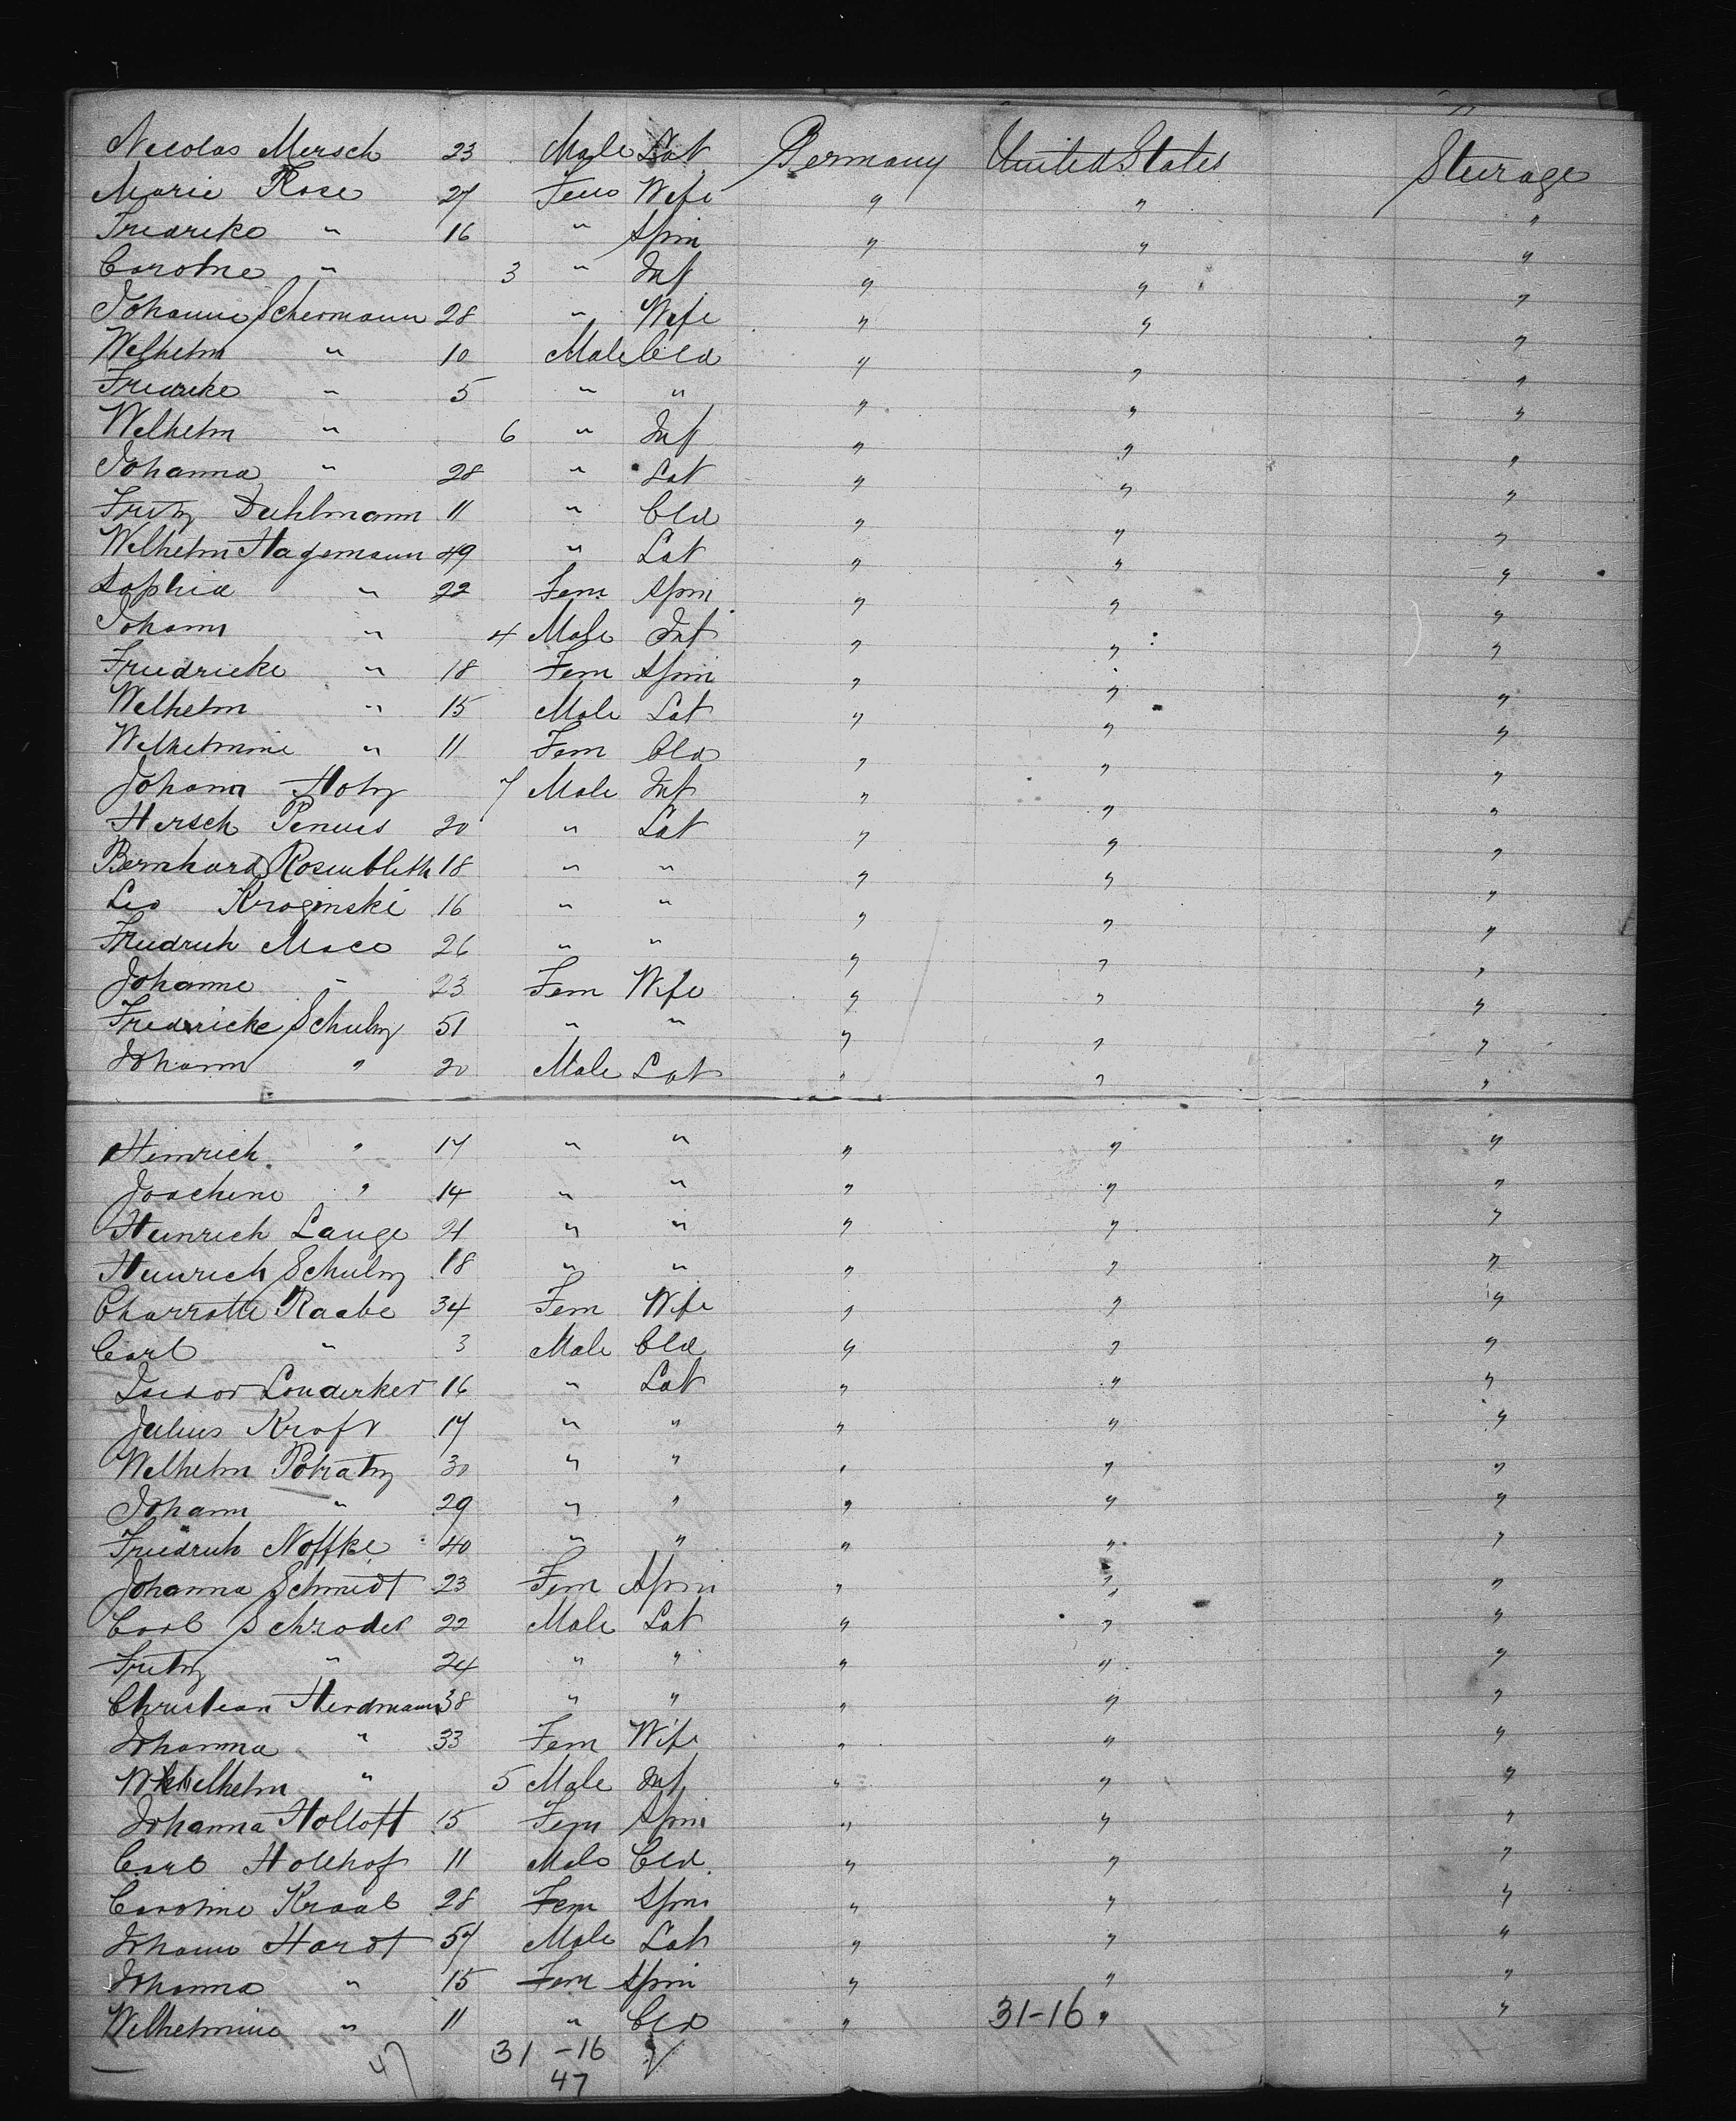 Nicolas Mersch 23 Male Lab Germany United States Steerage
Marie Rose 27 Fem Wife " " "
Friedrike " 16 " Spin " " "
Caroline " 3 " Inf " " "
Johanne Schermann 28 " Wife " " "
Wilhelm " 10 Male Cld " " "
Friedrike " 5 " " " " "
Wilhelm " 6 " Inf " " "
Johanna " 28 " Lab " " "
Fritz Dahlmann 11 " Cld " " "
Wilhelm Hagemann 49 " Lab " " "
Sophia " 22 Fem Spin " " "
Johann " 4 Male Inf " " "
Friedricke " 18 Fem Spin " " "
Wilhelm " 15 Male Lab " " "
Wilhelmine " 11 Fem Cld " " "
Johann Hotz 7 Male Inf " " "
Hersch Penius 20 " Lab " " "
Bernhard Rosenblith 18 " " " " "
Leo Kroginski 16 " " " " "
Friedrich Maco 26 " " " " "
Johanne " 23 Fem Wife " " "
Fredericke Schulz 51 " " " " "
Johann " 20 Male Lab " " "
Heinrich " 17 " " " " "
Joachim " 14 " " " " "
Heinrich Lange 21 " " " " "
Heinrich Schulz 18 " " " " "
Charrotte Raabe 34 Fem Wife " " "
Carl " 3 Male Cld " " "
Isidor Londerker 16 " Lab " " "
Julius Kraft 17 " " " " "
Wilhelm Potratz 30 " " " " "
Johann " 29 " " " " "
Friedrich Noffke 40 " " " " "
Johanna Schmidt 23 Fem Spin " " "
Carl Schroder 22 Male Lab " " "
Fritz " 24 " " " " "
Christian Herdmann 38 " " " " "
Johanna " 33 Fem Wife " " "
Wilhelm " 5 Male Inf " " "
Johanna Holloft 15 Fem Spin " " "
Carl Holthof 11 Male Cld. " " "
Caroline Kraal 28 Fem Spin " " "
Johann Hardt 57 Male Lab " " "
Johanna " 15 Fem Spin " " "
Wilhelmine " 11 " Cld " 31-16 " "
47 31 - 16
47